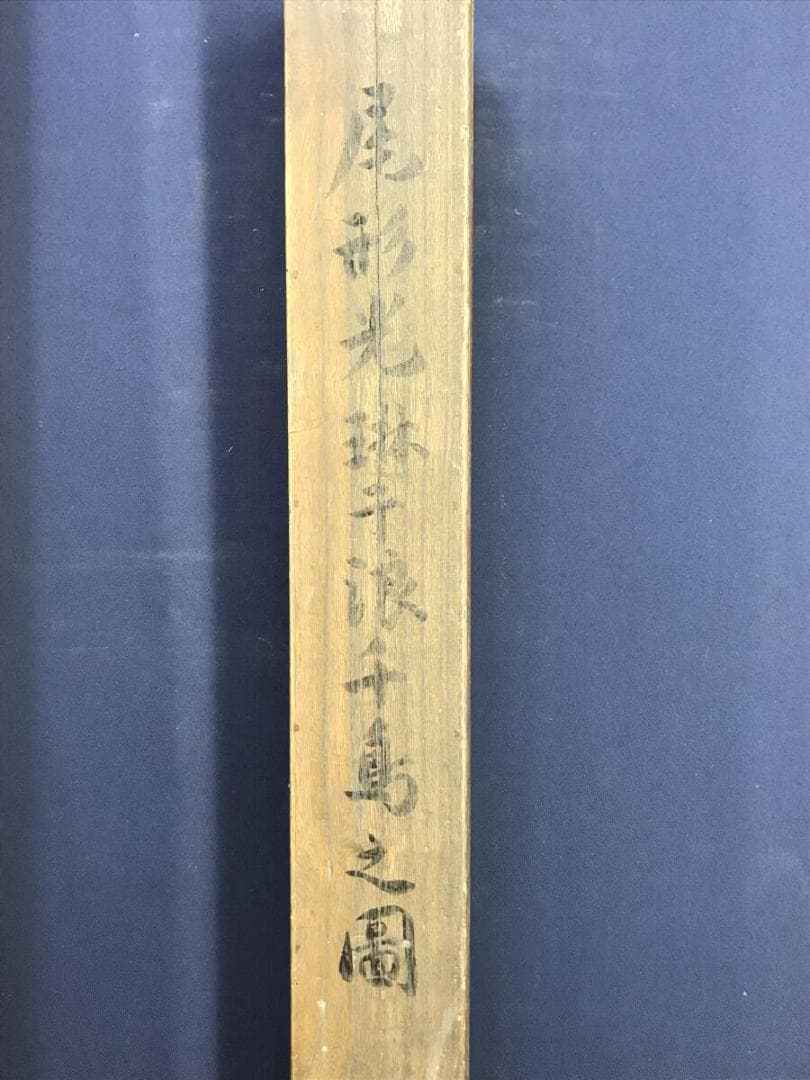 尾形光琳千浪千鳥之圖